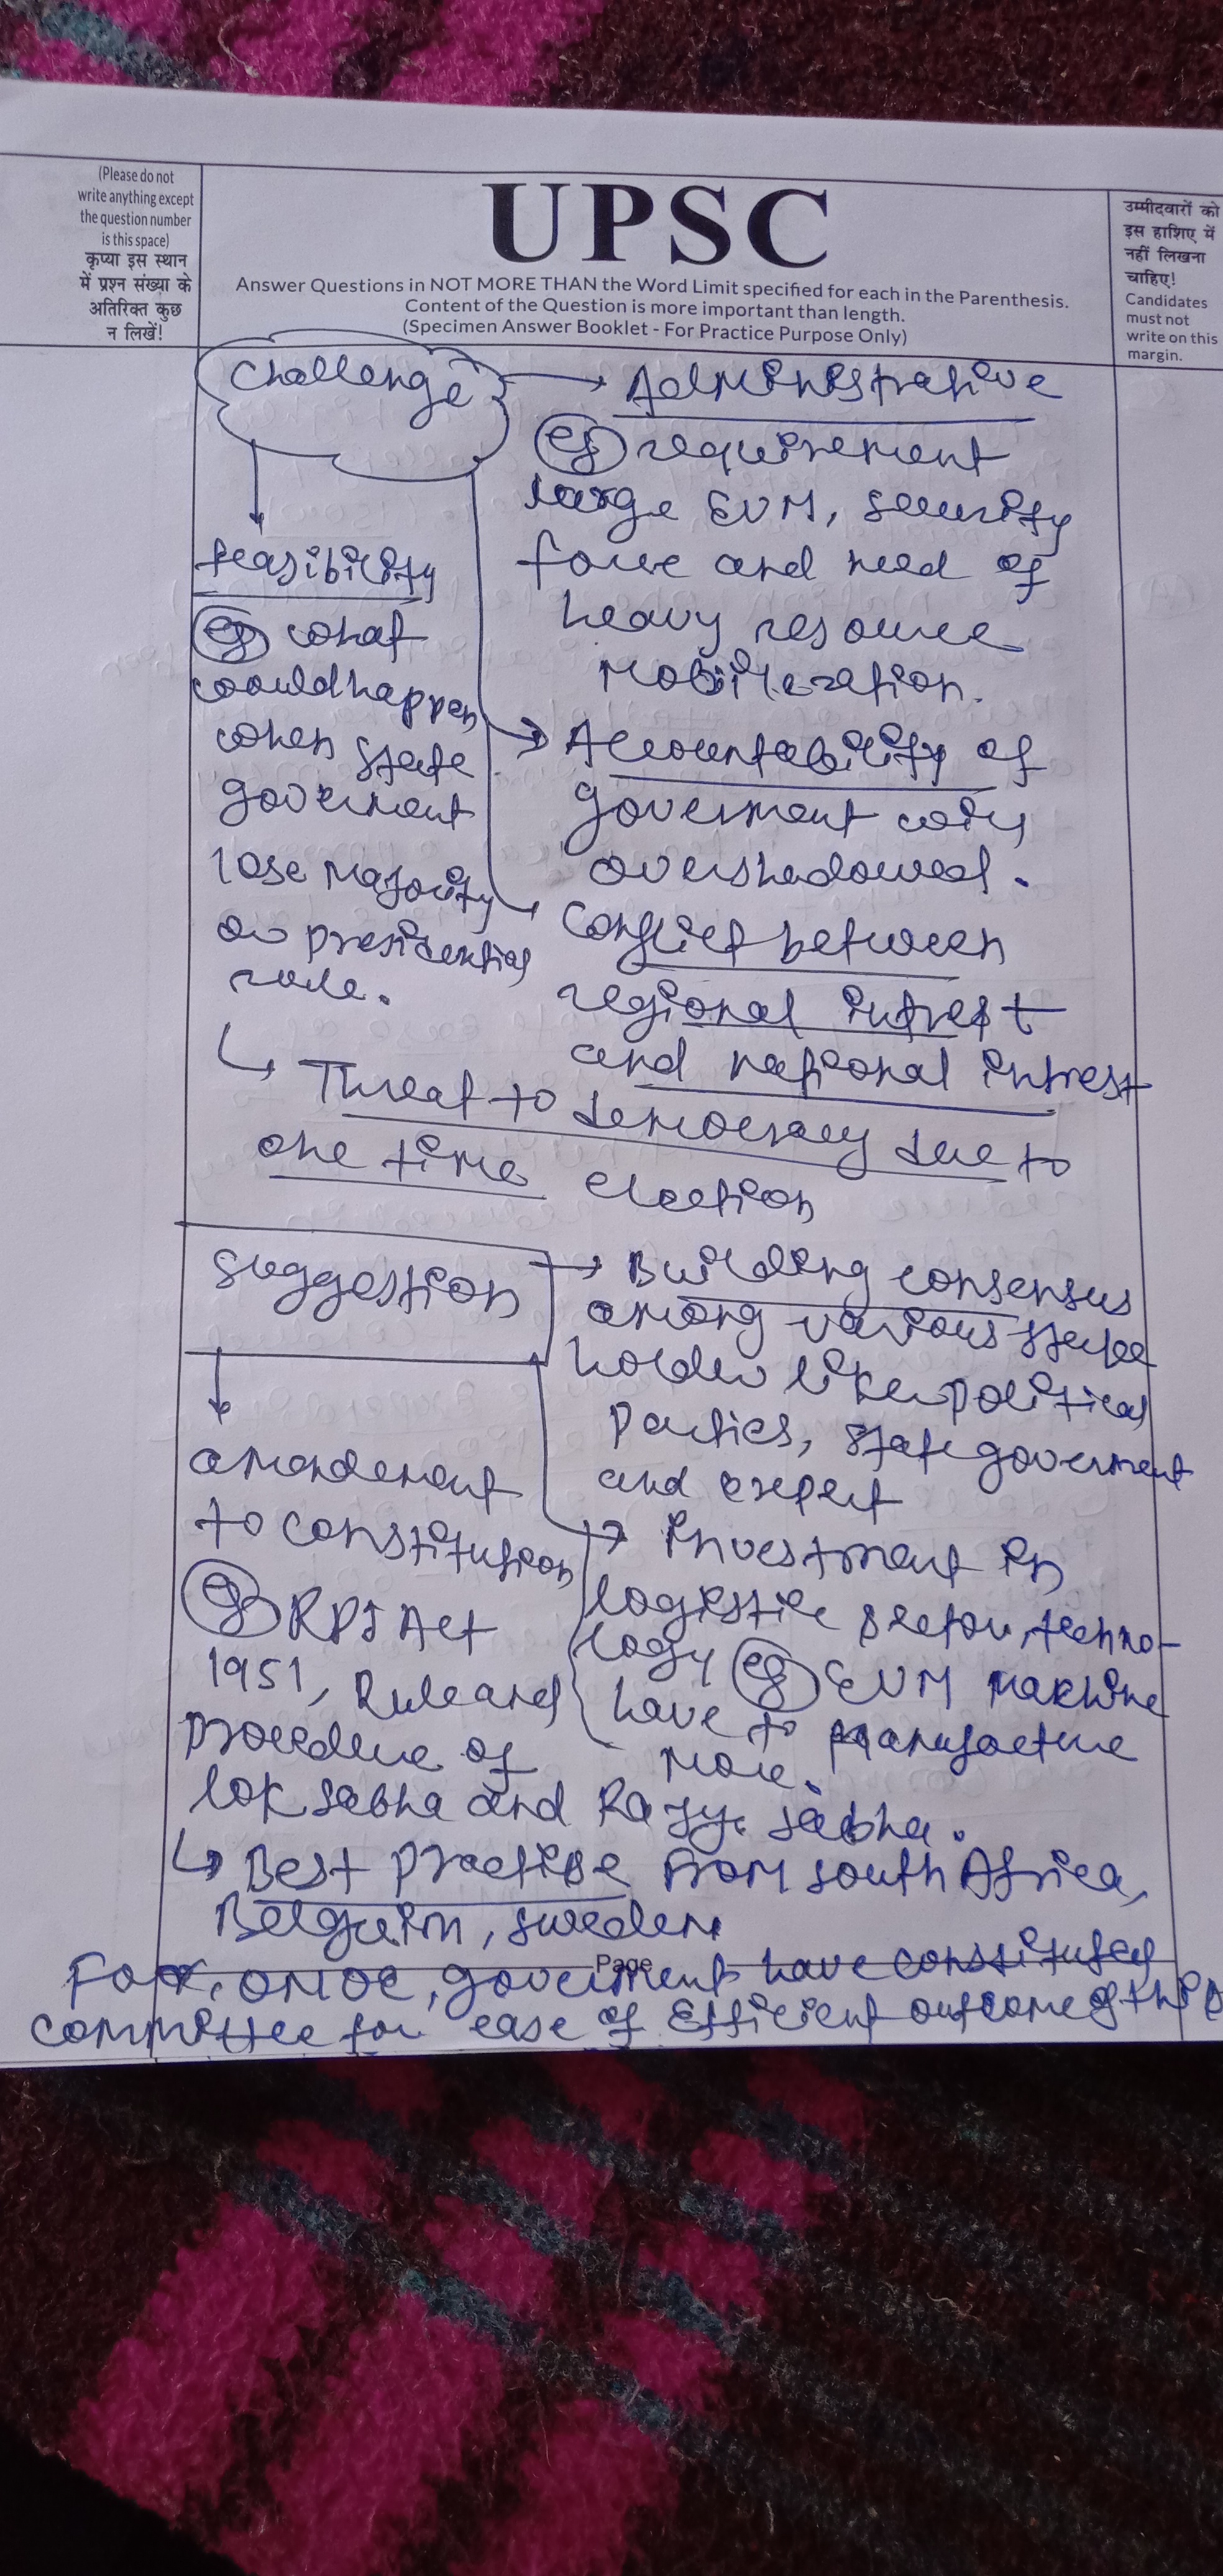 (Please do not
write anything except
the question number
is this space)
कृप्या इस स्थान
में प्रश्न संख्या के
अतिरिक्त कुछ
न लिखें!
UPSC
Answer Questions in NOT MORE THAN the Word Limit specified for each in the Parenthesis.
Content of the Question is more important than length.
(Specimen Answer Booklet - For Practice Purpose Only)
उम्मीदवारों को
इस हाशिए में
नहीं लिखना
चाहिए!
Candidates
must not
write on this
margin.
Challenge
Administrative
eg requirement
large EVM, security
force and need of
heavy resource
feasibility
eg what
would happen
when state
goverment
lose majority
or presidential
rule.
Accountability of
goverment
overshadowed.
Conflict between
regional intrest
and national intrest
Threat to democracy due to
one time election
Suggestion
Building consensus
among various stake
holder like political
Parties, state goverment
and expert
amendement
to constitution
eg Act
1951, Rule and
procedure of
lok sabha and sabha.
Investment in
logistic sector, techno-
logy eg EVM Machine
have to manufacture
more.
Best practise from south Africa,
sweden
Page
For, ONOE, goverment have constituted
committee for ease of Efficient outcome of this